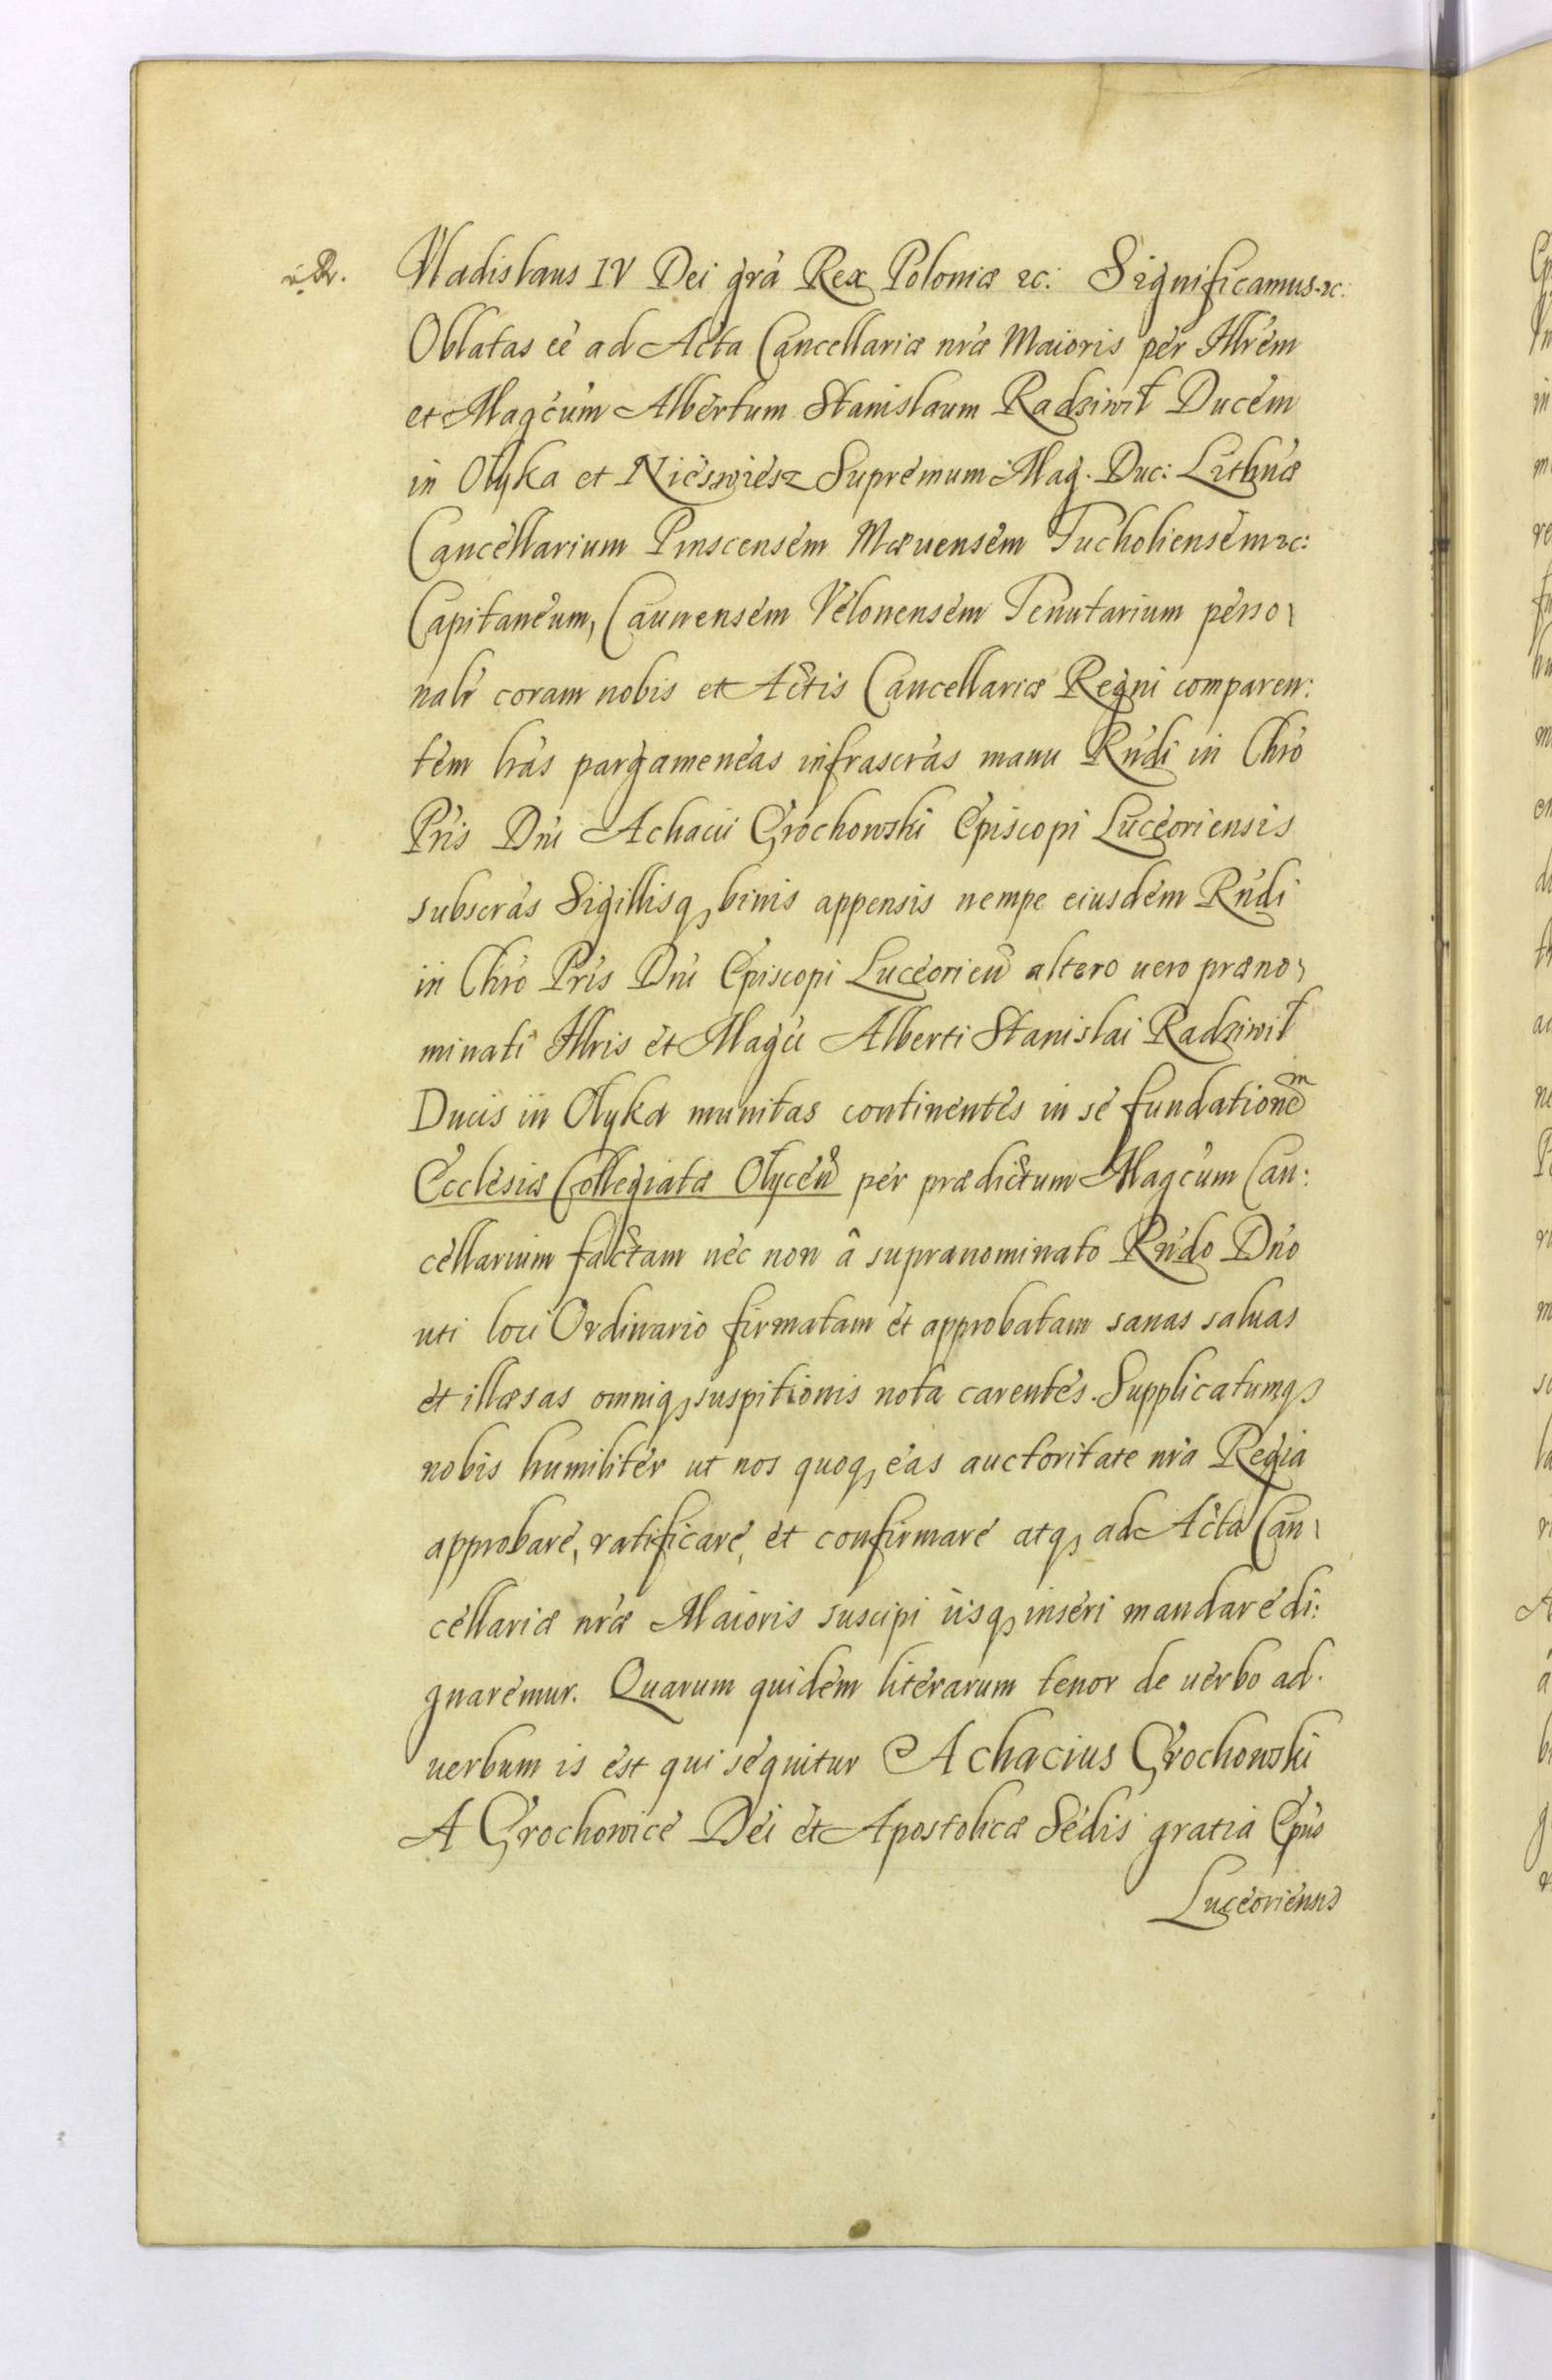 Vladislaus IV Dei grã Rex Poloniæ &c: Significamus &c:
Oblatas eẽ ad Acta Cancellariæ nræ Maioris per Illrem
et Magcum Albertum Stanislaum Radziwił Ducem
in Olyka et Nieswiesz Supremum Mag. Duc: Lithuæ
Cancellarium Pinscensem Mævensem Tucholiensem &c:
Capitaneum, Caunensem Velonensem Tenutarium perso
nalr coram nobis et Actis Cancellariæ Regni comparen:
tem lras pargameneas infrascras manu Rndi in Chro
Pris Dni Achacii Grochowski Episcopi Luceoriensis
subscras Sigillisq binis appensis nempe eiusdem Rndi
in Chro Pris Dni Episcopi Luceorien altero uero præno
minati Illris et Magci Alberti Stanislai Radziwił
Ducis in Olyka munitas continentes in se fundationem
Ecclesiæ Collegiatæ Olycen per prædictum Magcum Can:
cellarium factam nec non â supranominato Rndo Dno
uti loci Ordinario firmatam et approbatam sanas saluas
et illæsas omniq suspitionis nota carentes. Supplicatumq
nobis humiliter ut nos quoq eas auctoritate nra Regia
approbare, ratificare, et confirmare atq ad Acta Can
cellariæ nræ Maioris suscipi iisq inseri mandare di:
gnaremur. Quarum quidem literarum tenor de uerbo ad
uerbum is est qui sequitur Achacius Grochowski
A Grochowice Dei et Apostolicæ Sedis gratia Epus
Luceoriensis